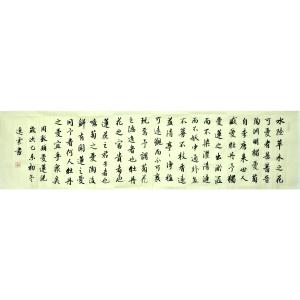 水陸草木之花
可愛者甚蕃晋
陶淵明獨愛菊
自李唐来世人
盛愛牡丹予獨
愛蓮之出淤泥
而不染濯清漣
而不妖中通外直
不蔓不枝香遠
益清亭亭净植
可遠觀而不可褻
玩焉予謂菊花
之隱逸者也牡丹
花之富貴者也
蓮花之君子者也
噫菊之愛陶後
鮮有聞蓮之愛
同予者何人牡丹
之愛宜乎衆矣
周敦頤愛蓮説
歲次乙未初冬
書